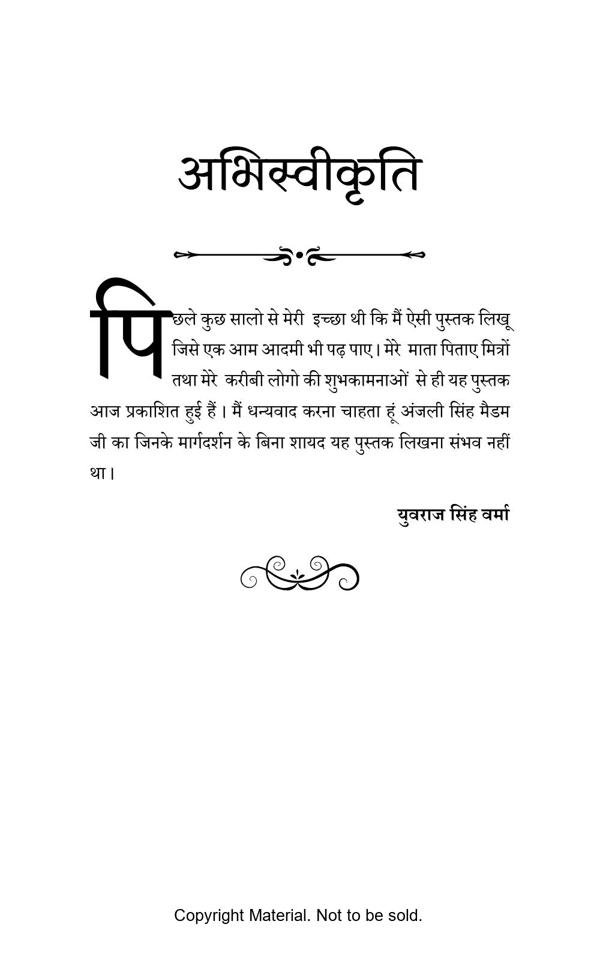 अभिस्वीकृति
पिछले कुछ सालो से मेरी इच्छा थी कि मैं ऐसी पुस्तक लिखू
जिसे एक आम आदमी भी पढ़ पाए। मेरे माता पिताए मित्रों
तथा मेरे करीबी लोगो की शुभकामनाओं से ही यह पुस्तक
आज प्रकाशित हुई हैं। मैं धन्यवाद करना चाहता हूं अंजली सिंह मैडम
जी का जिनके मार्गदर्शन के बिना शायद यह पुस्तक लिखना संभव नहीं
था।
युवराज सिंह वर्मा
Copyright Material. Not to be sold.